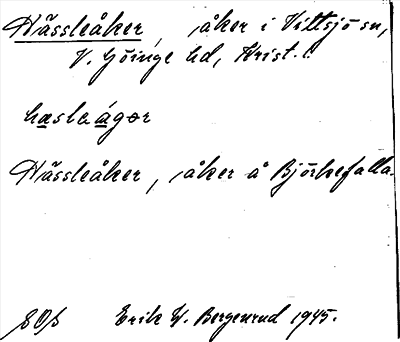 Hässleåker, åker i Vittsjö sn,
V. Göinge hd, Krist. l.
hasleågər
Hässleåker, åker å Björkefalla.
Erik W. Bergenrud 1945.